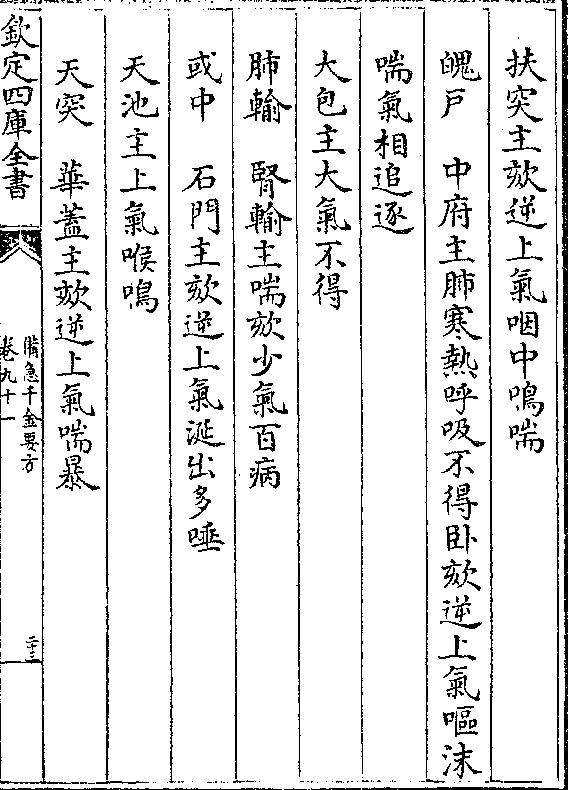 扶突主欬逆上氣咽中鳴喘
魄戶　中府主肺寒熱呼吸不得卧欬逆上氣嘔沫
喘氣相追逐
大包主大氣不得
肺輸　腎輸主喘欬少氣百病
或中　石門主欬逆上氣涎出多唾
天池主上氣喉鳴
天突　華蓋主欬逆上氣喘暴
欽定四庫全書
備急千金要方
卷九十一
二十三